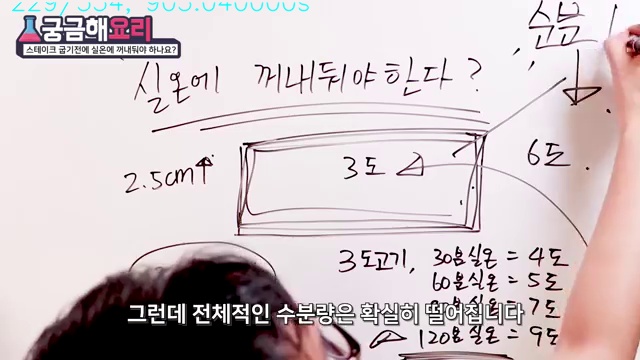 229/554, 903.040000s
궁금해요리
스테이크 굽기전에 실온에 꺼내둬야 하나요?
수분
실온에 꺼내둬야한다?
2.5cm↑
3도
6도.
3도고기, 30분실온 = 4도
60분실온 = 5도
= 7도
120분실온 = 9도
그런데 전체적인 수분량은 확실히 떨어집니다